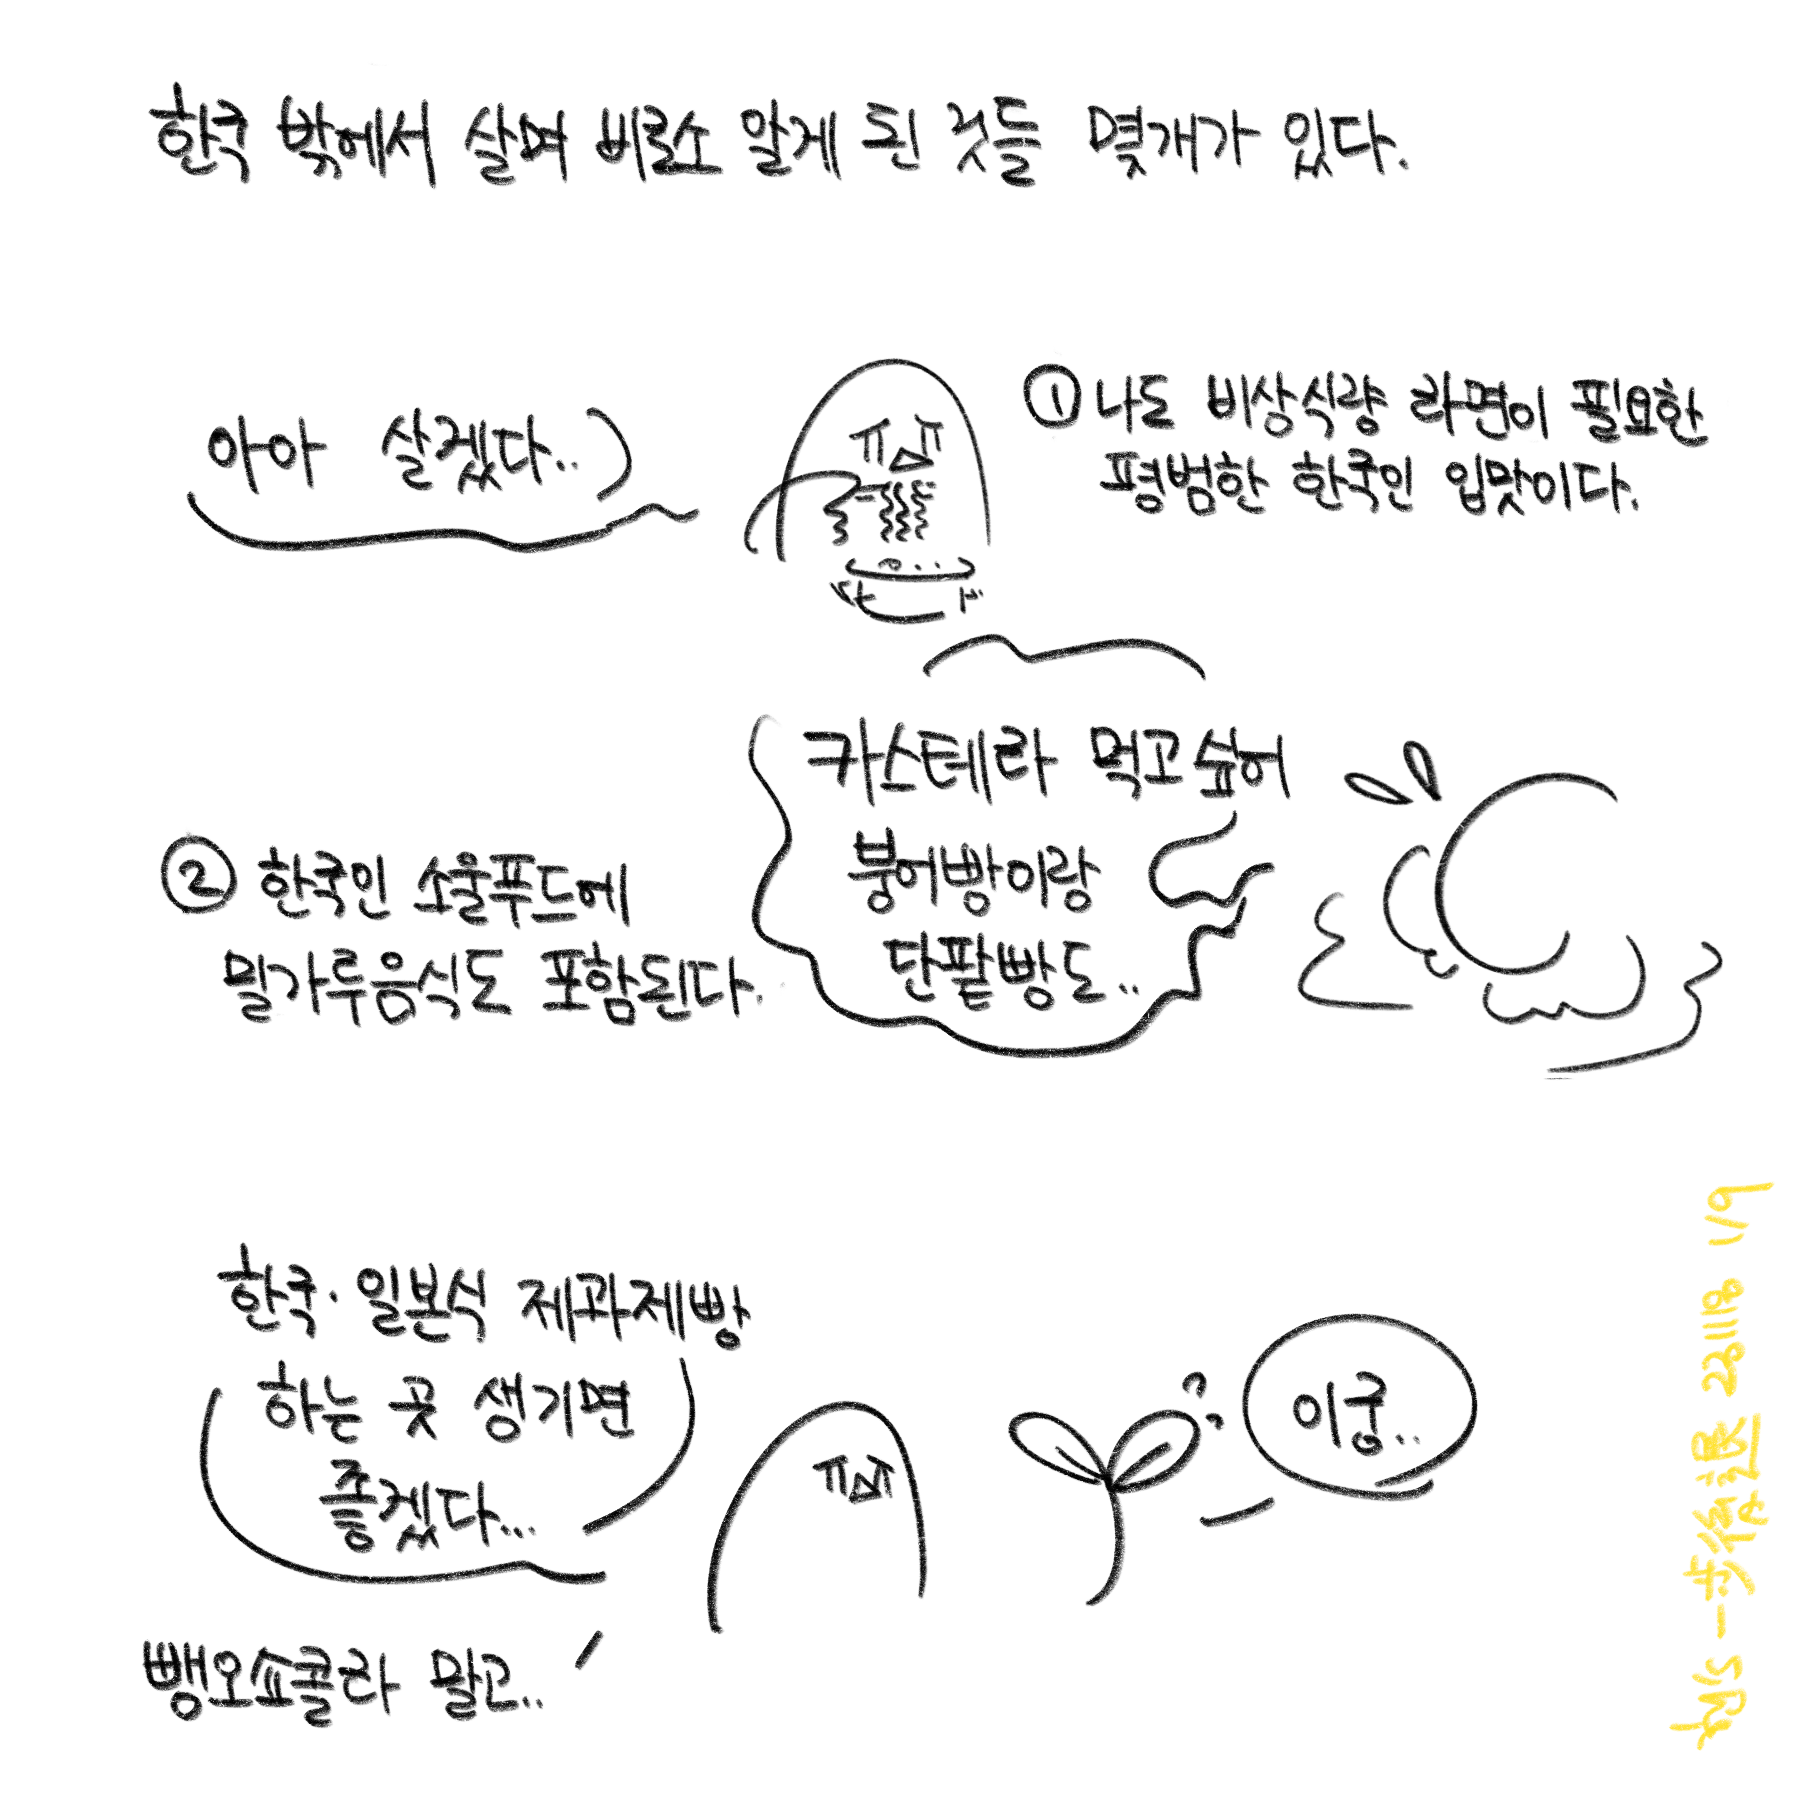 한국 밖에서 살며 비로소 알게 된 것들 몇개가 있다.
아아 살겠다..
① 나도 비상식량 라면이 필요한
평범한 한국인 입맛이다.
카스테라 먹고싶어
붕어빵이랑
단팥빵도..
② 한국인 소울푸드에
밀가루음식도 포함된다.
한국·일본식 제과제빵
하는 곳 생기면
좋겠다...
이궁..
뺑오쇼콜라 말고..
1/9